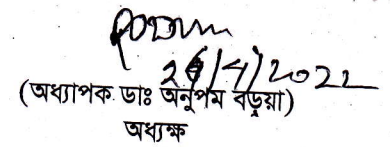 26/4/2022
(অধ্যাপক ডাঃ অনুপম বড়ুয়া)
অধ্যক্ষ